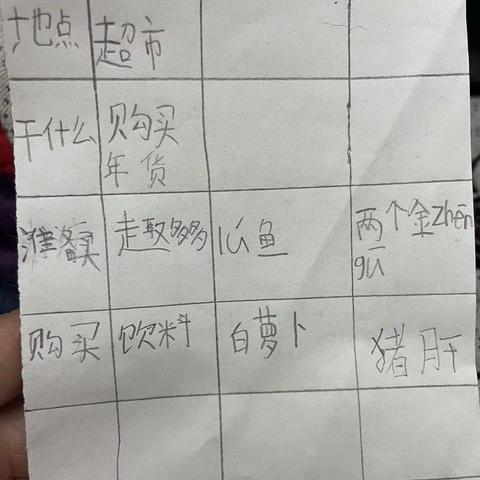 地点 超市
干什么 购买
年货
准备买 走取多多 瓜鱼 两个金zhēn
gū
购买 饮料 白萝卜 猪肝